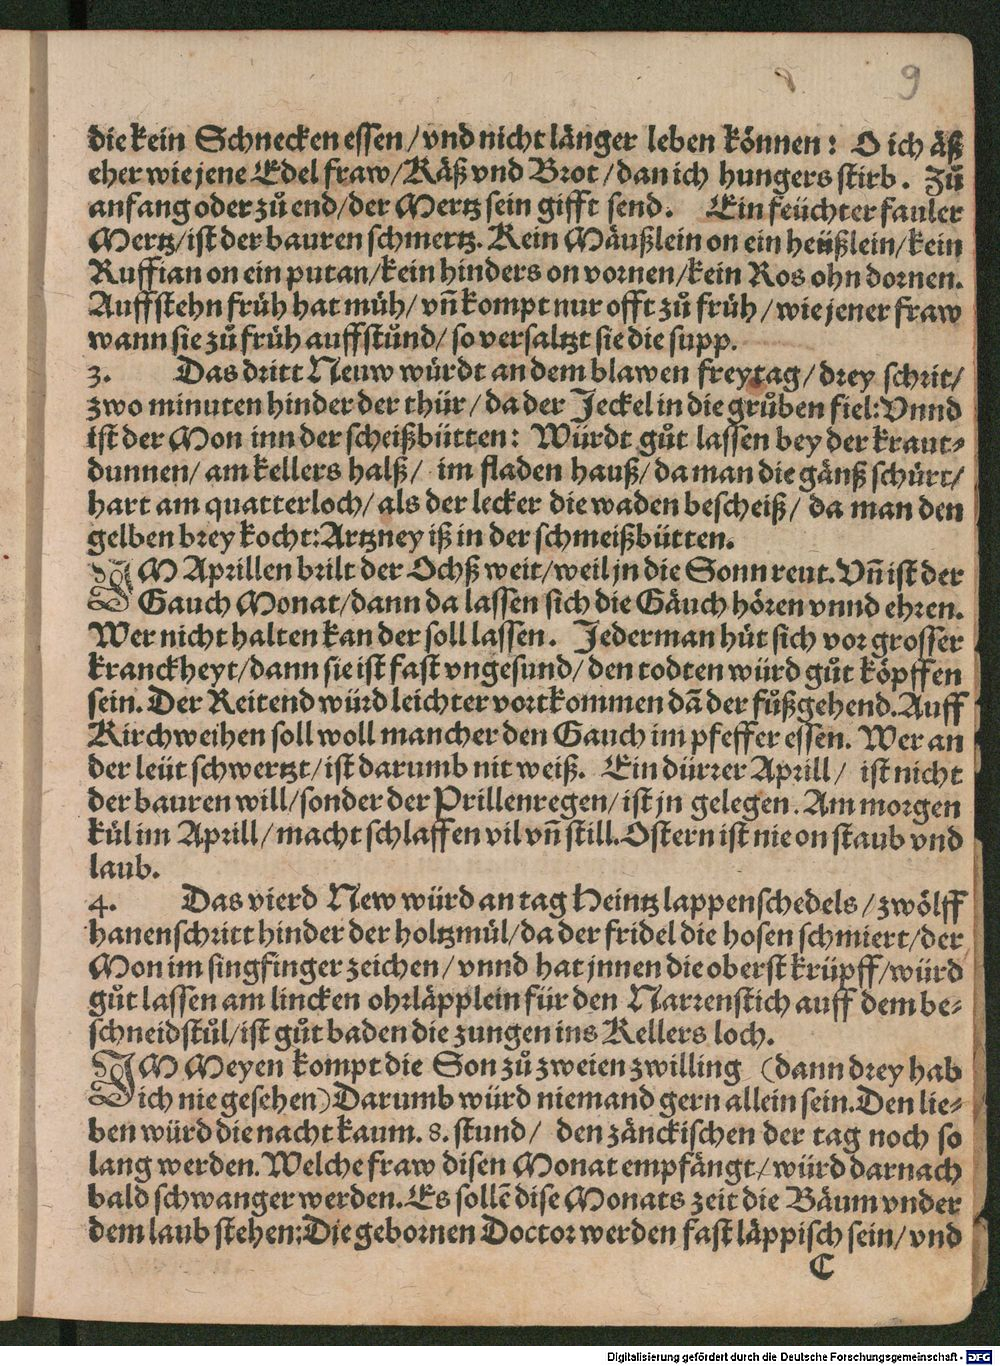 9
die kein Schnecken essen / vnd nicht länger leben können: O ich äß
eher wie jene Edel fraw / Käß vnd Brot / dan ich hungers stirb. Zuͦ
anfang oder zuͦ end / der Mertz sein gifft send. Ein feüchter fauler
Mertz / ist der bauren schmertz. Kein Mäußlein on ein heüßlein / kein
Ruffian on ein putan / kein hinders on vornen / kein Ros ohn dornen.
Auffstehn früh hat müh / vn̄ kompt nur offt zuͦ früh / wie jener fraw
wann sie zuͦ früh auffstuͦnd / so versaltzt sie die supp.
3. Das dritt Neuw würdt an dem blawen freytag / drey schrit /
zwo minuten hinder der thür / da der Jeckel in die gruͦben fiel: Vnnd
ist der Mon inn der scheißbütten: Würdt guͦt lassen bey der kraut⸗
dunnen / am kellers halß / im fladen hauß / da man die gänß schürt /
hart am quatterloch / als der lecker die waden bescheiß / da man den
gelben brey kocht: Artzney iß in der schmeißbütten.
IM Aprillen brilt der Ochß weit / weil jn die Sonn reut. Vn̄ ist der
Gauch Monat / dann da lassen sich die Gäuch hören vnnd ehren.
Wer nicht halten kan der soll lassen. Jederman hüt sich vor grosser
kranckheyt / dann sie ist fast vngesund / den todten würd guͦt köpffen
sein. Der Reitend würd leichter vortkommen dā der fuͦßgehend. Auff
Kirchweihen soll woll mancher den Gauch im pfeffer essen. Wer an
der leüt schwertzt / ist darumb nit weiß. Ein dürrer Aprill / ist nicht
der bauren will / sonder der Prillenregen / ist jn gelegen. Am morgen
kül im Aprill / macht schlaffen vil vn̄ still. Ostern ist nie on staub vnd
laub.
4. Das vierd New würd an tag Heintz lappenschedels / zwölff
hanenschritt hinder der holtzmül / da der fridel die hosen schmiert / der
Mon im singfinger zeichen / vnnd hat jnnen die oberst krüpff / würd
guͦt lassen am lincken ohrläpplein für den Narrenstich auff dem be⸗
schneidstuͦl / ist guͦt baden die zungen ins Kellers loch.
IM Meyen kompt die Son zuͦ zweien zwilling (dann drey hab
ich nie gesehen) Darumb würd niemand gern allein sein. Den lie⸗
ben würd die nacht kaum. 8. stund / den zänckischen der tag noch so
lang werden. Welche fraw disen Monat empfängt / würd darnach
bald schwanger werden. Es sollē dise Monats zeit die Bäum vnder
dem laub stehen: Die gebornen Doctor werden fast läppisch sein / vnd
C
Digitalisierung gefördert durch die Deutsche Forschungsgemeinschaft - DFG